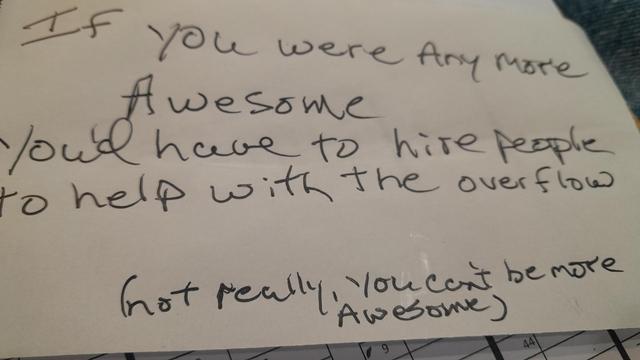 If you were Any more
Awesome
You'd have to hire people
to help with the overflow
(not really, you can't be more
Awesome)
9
44